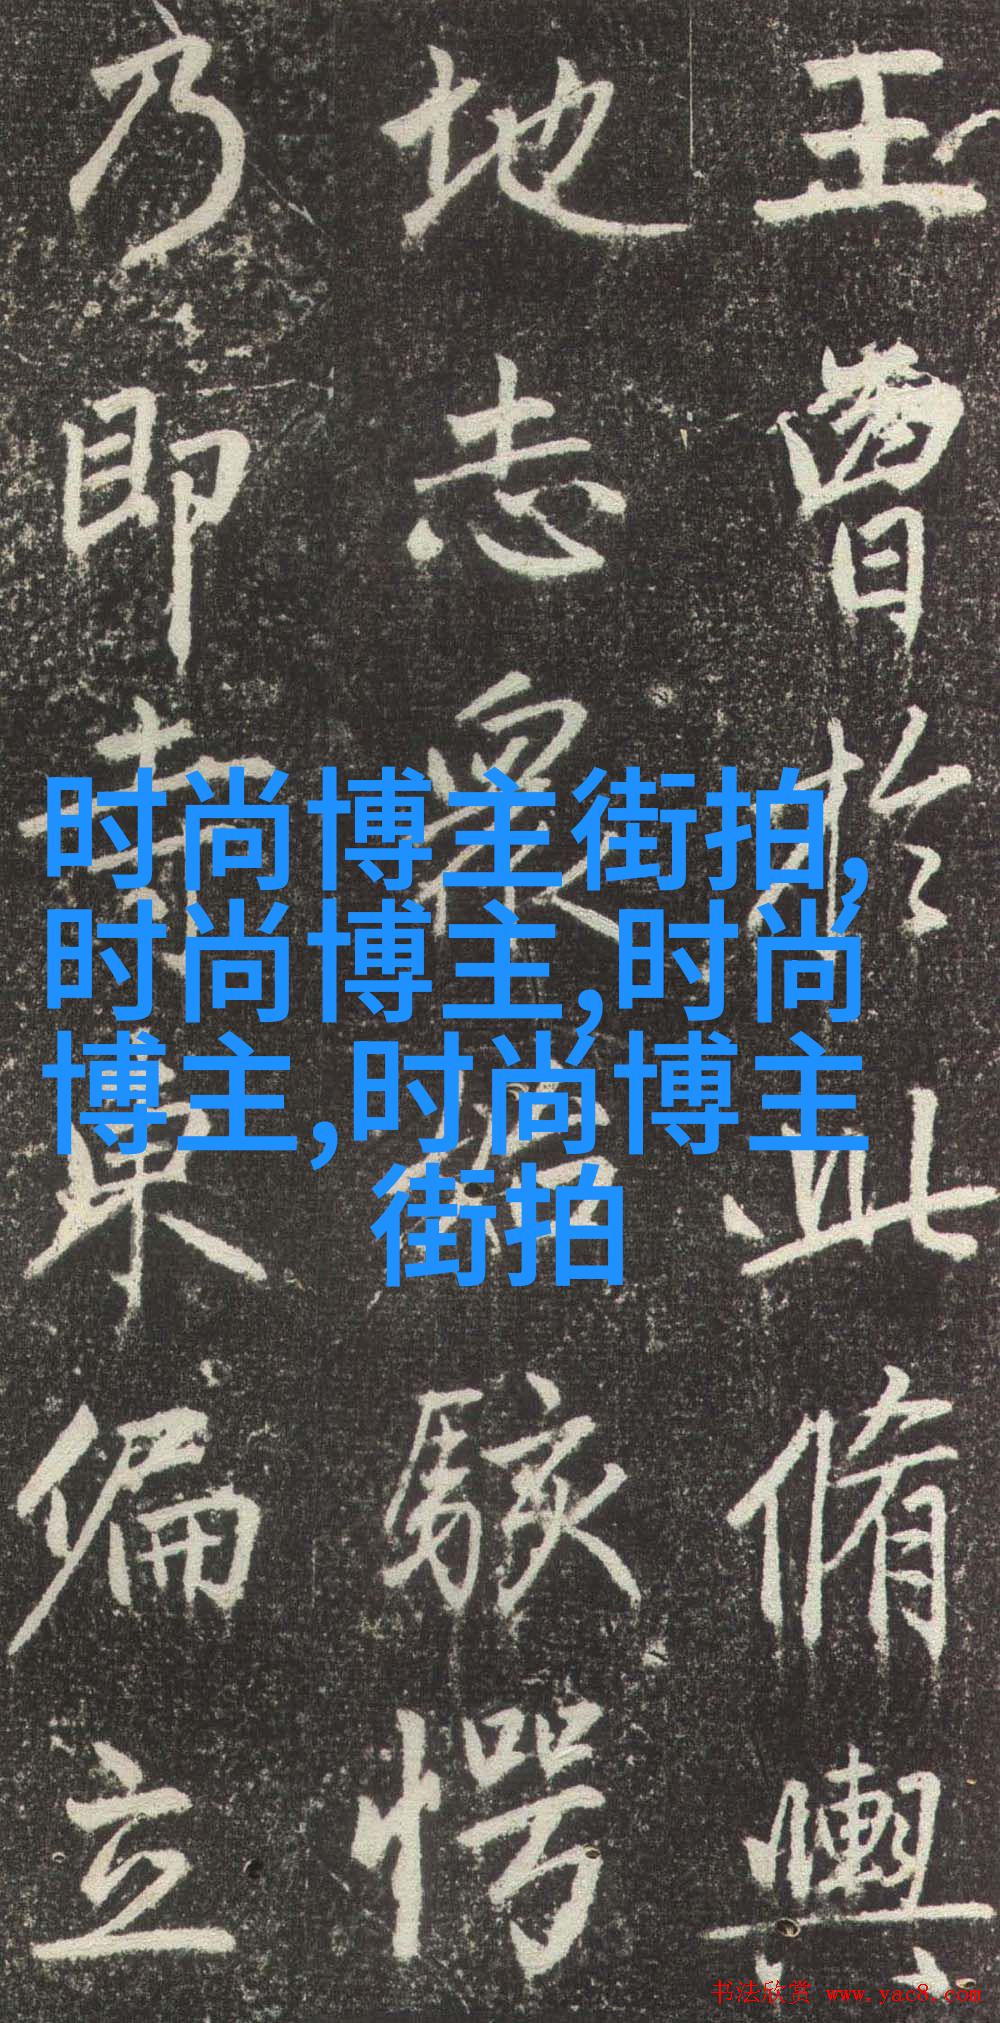 王曾於此脩輿
地志衆駭愕
乃即寺東偏立
时尚博主街拍,
时尚博主,时尚
博主,时尚博主
街拍
书法欣赏 www.yac8.com